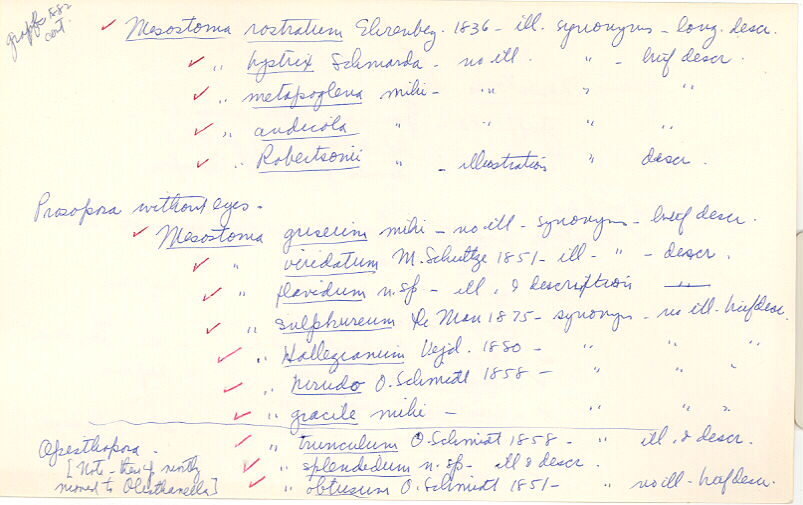 graff 1882
cont.
✓ Mesostoma rostratum Ehrenbeg. 1836 - ill. synonyms - long. descr.
✓ " hystrix Schmarda - no ill. " - brief descr.
✓ " metapoglena mihi - " " "
✓ " andicola " " " "
✓ " Robertsonii " - illustration " descr.
Prosopora without eyes -
✓ Mesostoma griseum mihi - no ill - synonyms - brief descr.
✓ " viridatum M. Schultze 1851 - ill - " - descr.
✓ " flavidum n. sp - ill. & description —
✓ " sulphureum De Man 1875 - synonyms - no ill. brief desc.
✓ " Hallezianum Vejd. 1880 - " " "
✓ " Nerudo O. Schmidt 1858 - " " "
✓ " gracile mihi - " "
Opisthopora.
✓ " trunculum O. Schmidt 1858 - " ill. & descr.
✓ " splendedum n. sp - ill & descr.
✓ " obtusum O. Schmidt 1851 - " no ill - brief descr.
[Note - these sp mostly
moved to Olisthanella]